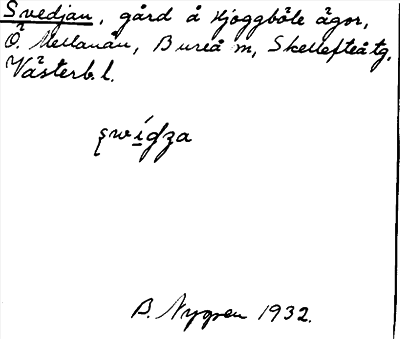 Svedjan, gård å Hjoggböle ägor,
Ö. Mellanån, Bureå m, Skellefteå tg,
Västerb. l.
B. Nygren 1932.